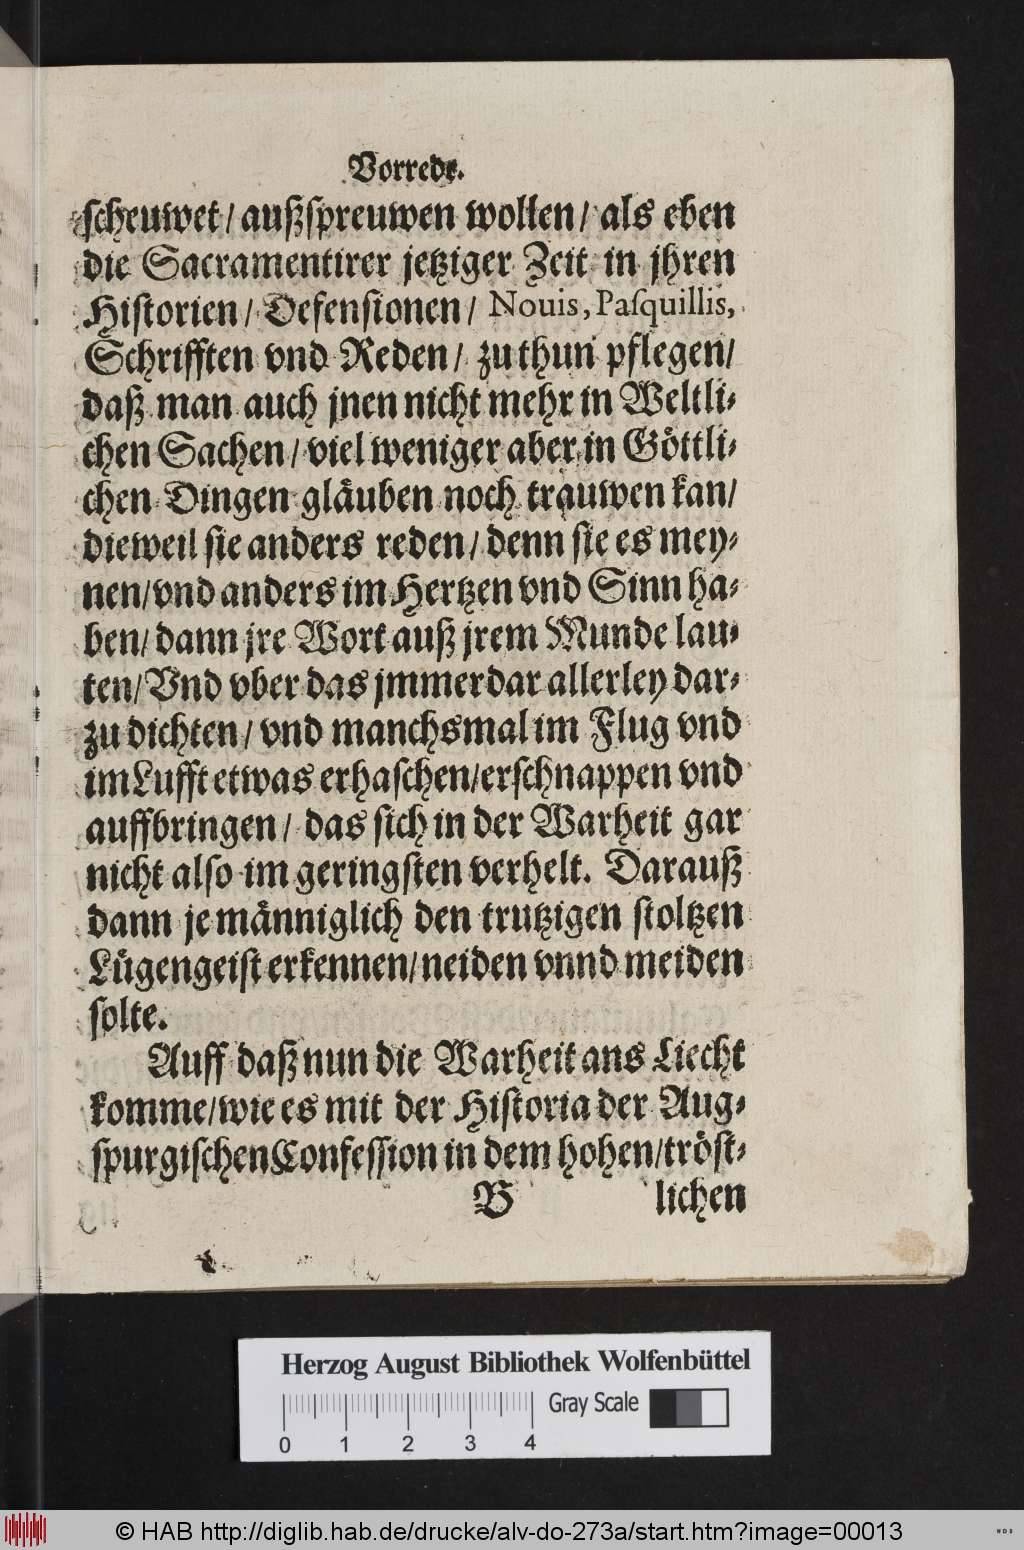 Vorrede.
ſcheuwet/ außſpreuwen wollen/ als eben
die Sacramentirer jetziger Zeit in jhren
Hiſtorien/ Defenſionen/ Nouis, Paſquillis,
Schrifften vnd Reden/ zu thun pflegen/
daß man auch jnen nicht mehr in Weltli⸗
chen Sachen/ viel weniger aber in Göttli⸗
chen Dingen gläuben noch trauwen kan/
dieweil ſie anders reden/ denn ſie es mey⸗
nen/ vnd anders im Hertzen vnd Sinn ha⸗
ben/ dann jre Wort auß jrem Munde lau⸗
ten/ Vnd vber das jmmerdar allerley dar⸗
zu dichten/ vnd manchsmal im Flug vnd
im Lufft etwas erhaſchen/ erſchnappen vnd
auffbringen/ das ſich in der Warheit gar
nicht alſo im geringſten verhelt. Darauß
dann je männiglich den trutzigen ſtoltzen
Lügengeiſt erkennen/ neiden vnnd meiden
ſolte.
Auff daß nun die Warheit ans Liecht
komme/ wie es mit der Hiſtoria der Aug⸗
ſpurgiſchen Confeſſion in dem hohen/ tröſt⸗
B lichen
Herzog August Bibliothek Wolfenbüttel
Gray Scale
0 1 2 3 4
© HAB http://diglib.hab.de/drucke/alv-do-273a/start.htm?image=00013